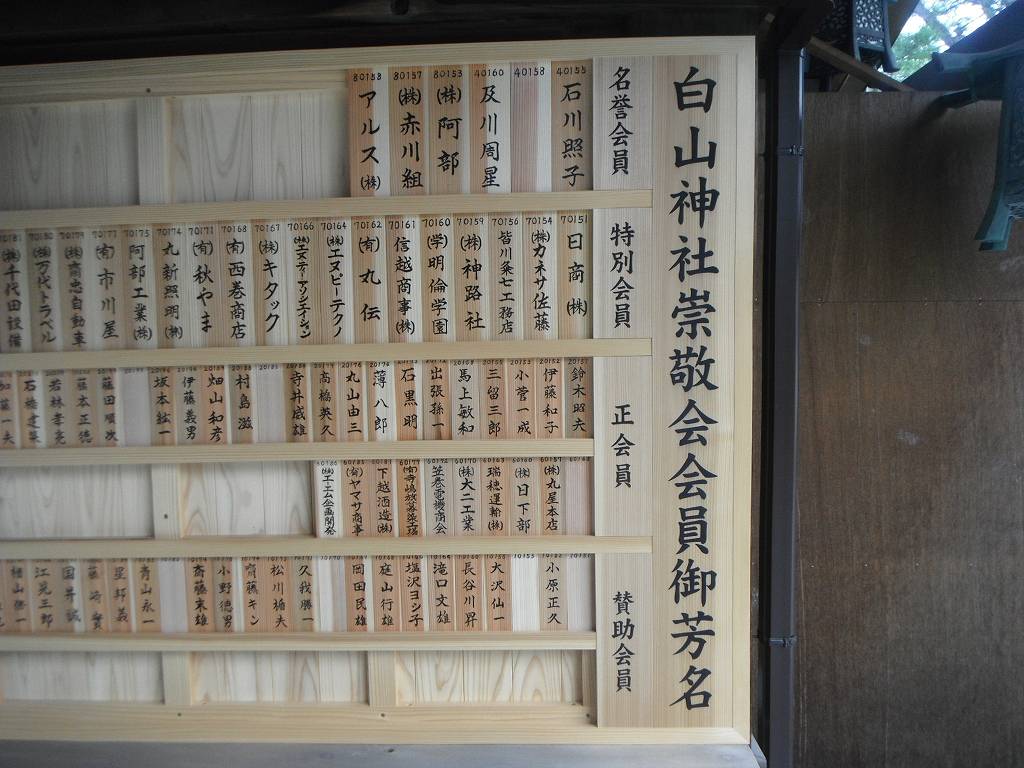 白山神社崇敬会会員御芳名
名誉会員
40155 石川照子
40158
40160 及川周星
80153 (株)阿部
80157 (株)赤川組
80158 アルス(株)
特別会員
70151 日商(株)
70154 (株)カネサ佐藤
70156 皆川粂七工務店
70159 (株)神路社
70160 (学)明倫学園
70161 信越商事(株)
70162 (有)丸伝
70164 (株)エヌピーテクノ
70166 (株)エヌティーアソシエイション
70167 (株)キタック
70168 (有)西巻商店
70171 (有)秋やま
70174 丸新照明(株)
70175 阿部工業(株)
70177 (有)市川屋
70179 (株)齋忠自動車
70180 (株)万代トラベル
70181 (株)千代田設備
正会員
20151 鈴木昭夫
20152 伊藤和子
20153 小菅一成
20155 三留三郎
馬上敏和
出張孫一
石黒明
20174 薄八郎
丸山由三
高橋英久
寺井威雄
村島滋
畑山和彦
伊藤義男
坂本鉱一
藤田順次
藤本正徳
若林孝亮
加藤一夫
60157 (株)丸屋本店
60160 (株)日下部
瑞穂運輸(株)
60170 (株)大二工業
笠巻電機商会
下越酒造(株)
60185 (有)ヤマサ商事
60186 (株)エーエム企画開発
賛助会員
小原正久
10153
大沢仙一
長谷川昇
滝口文雄
塩沢ヨシ子
庭山行雄
岡田民雄
久我勝一
松川楯夫
齊藤キン
小野德男
斎藤末雄
青山永一
星邦義
国井誠
江晃三郎